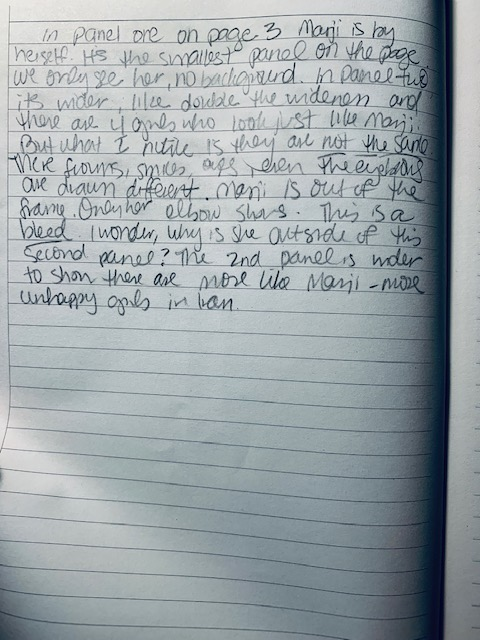 In panel one on page 3 Marji is by
herself. Its the smallest panel on the page.
We only see her, no background. In Panel two
its wider, like double the wideness and
there are 4 girls who look just like Marji.
But what I notice is they are not the same
There frowns, smiles, ages, even The expressions
are drawn different. Marji is out of the
frame. Only her elbow shows. This is a
bleed. I wonder, why is she outside of this
second panel? The 2nd panel is wider
to show there are more like Marji - more
unhappy girls in Iran.